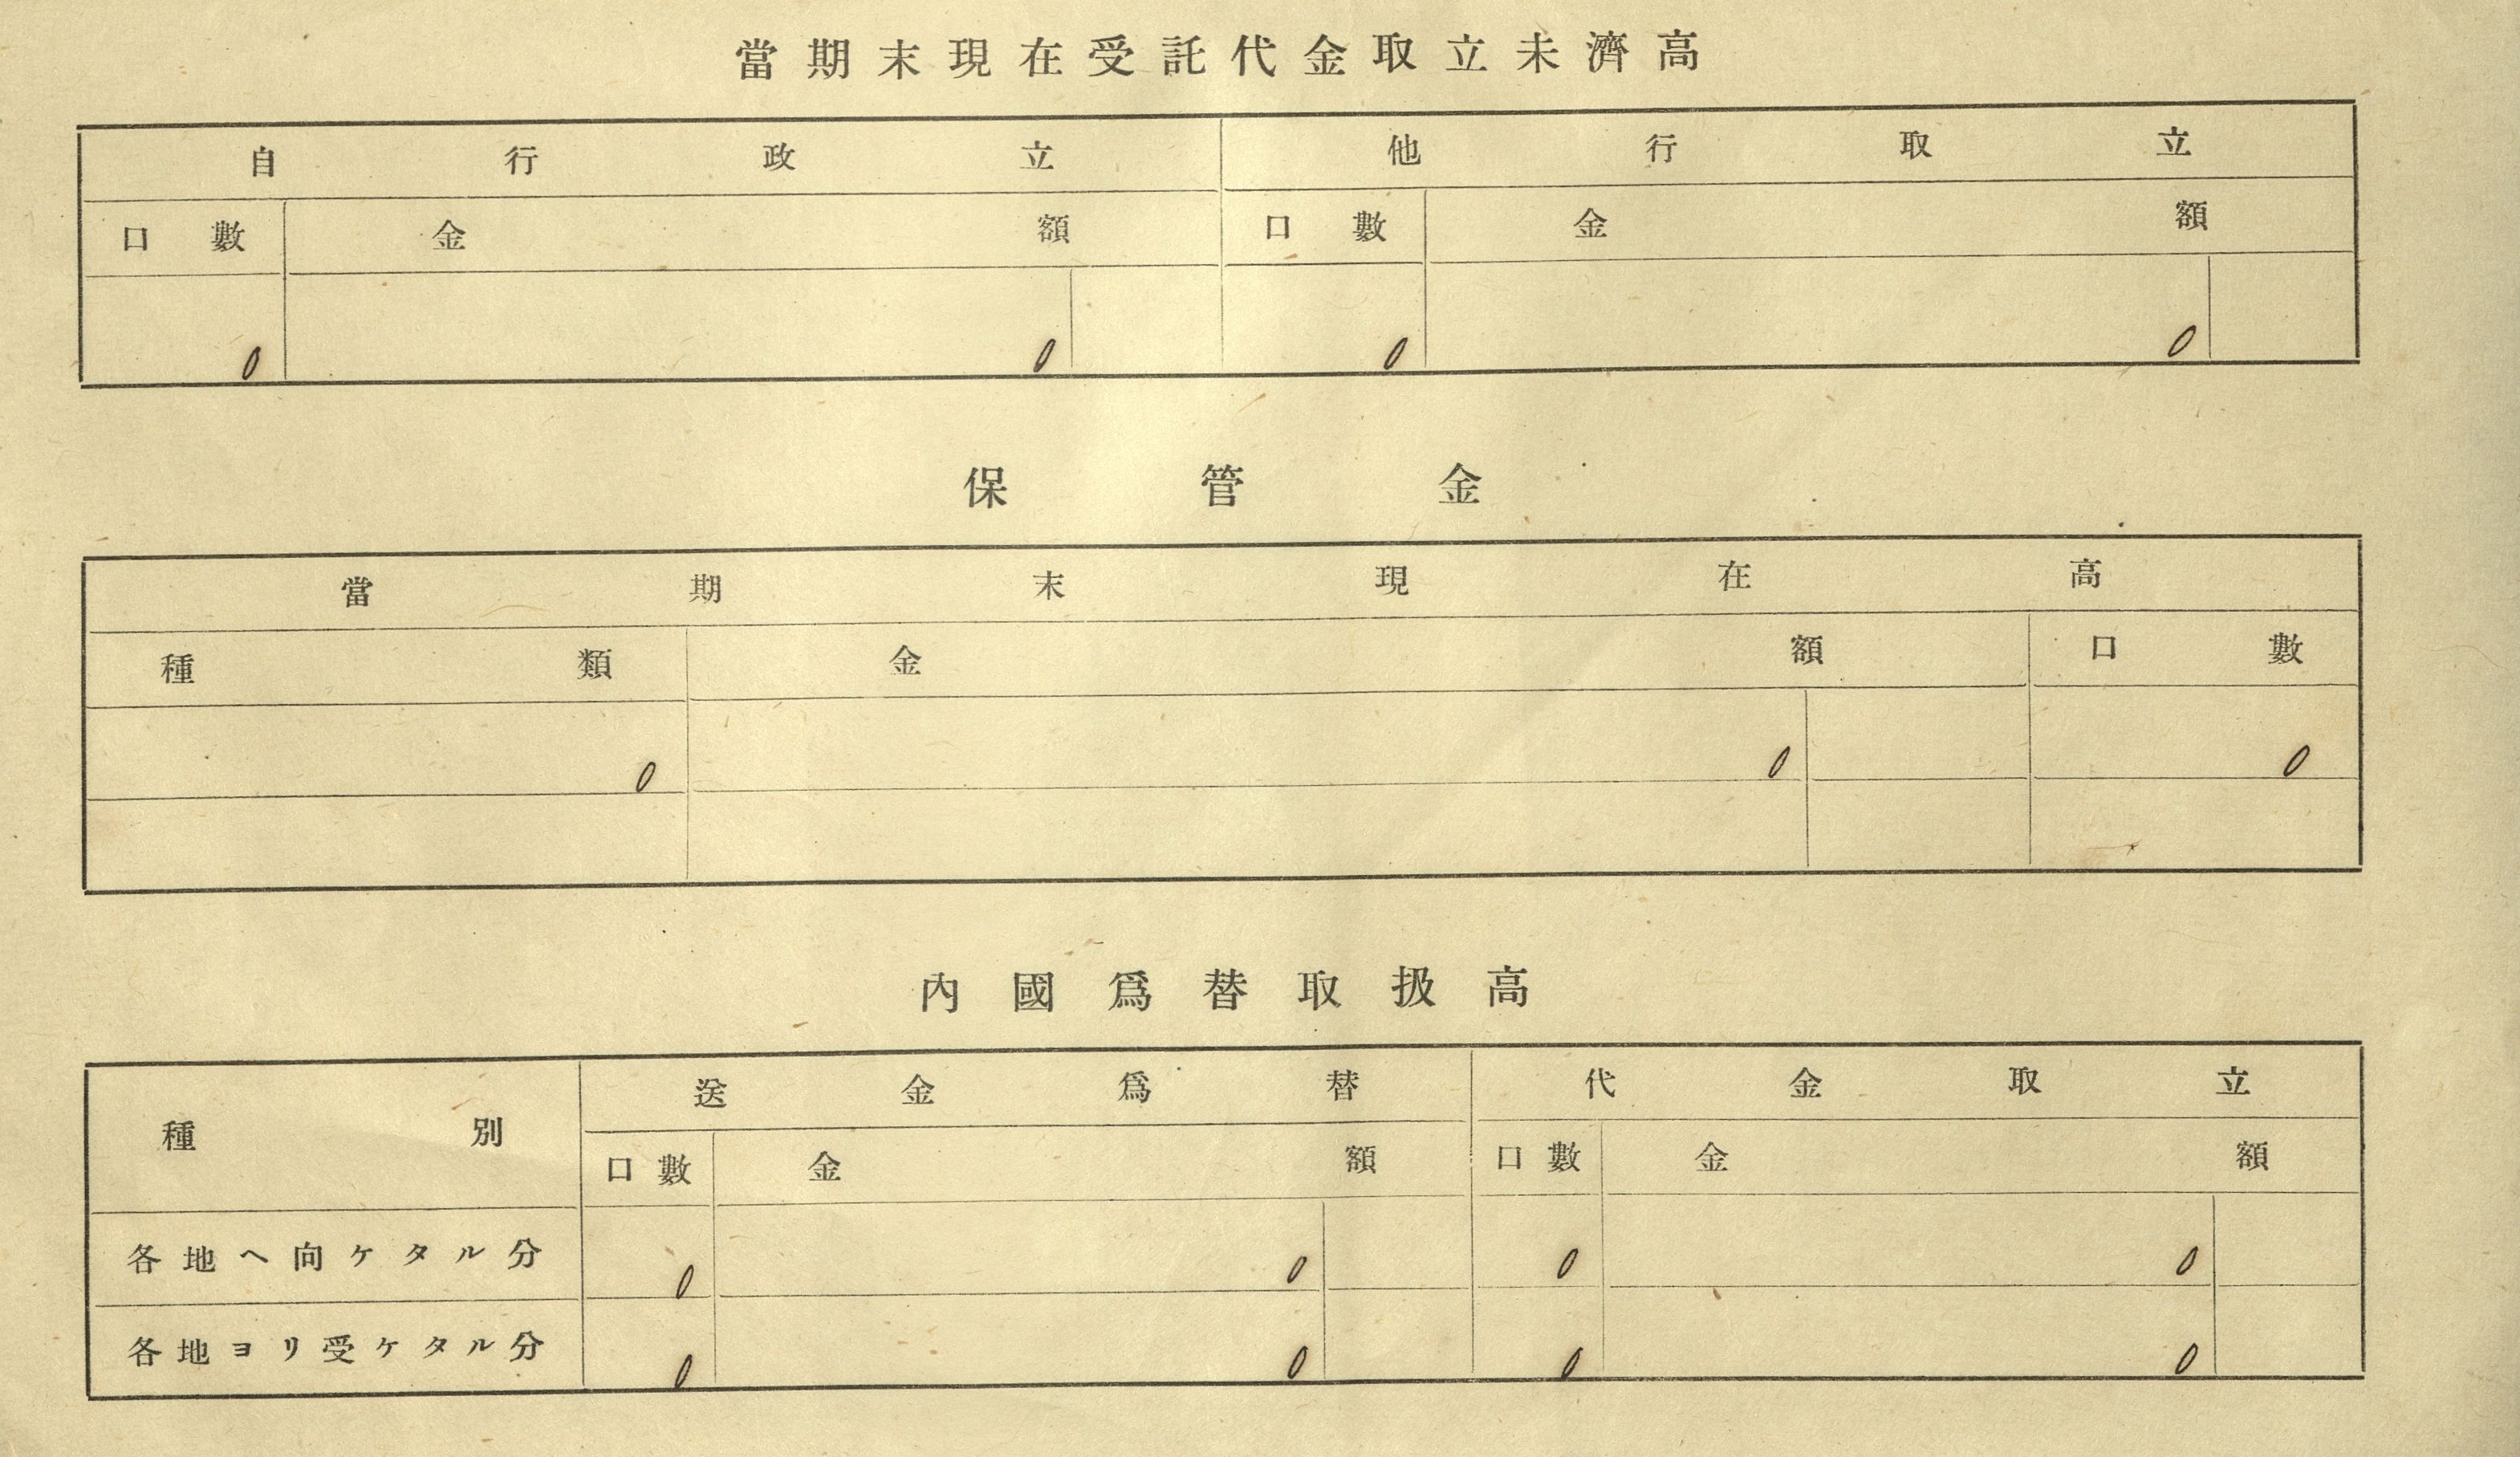 當期末現在受託代金取立未濟高
自行政立 他行取立
口數 金額 口數 金額
0 0 0 0
保管金
當期末現在高
種類 金額 口數
0 0 0
內國爲替取扱高
種別 送金爲替 代金取立
口數 金額 口數 金額
各地ヘ向ケタル分 0 0 0 0
各地ヨリ受ケタル分 0 0 0 0